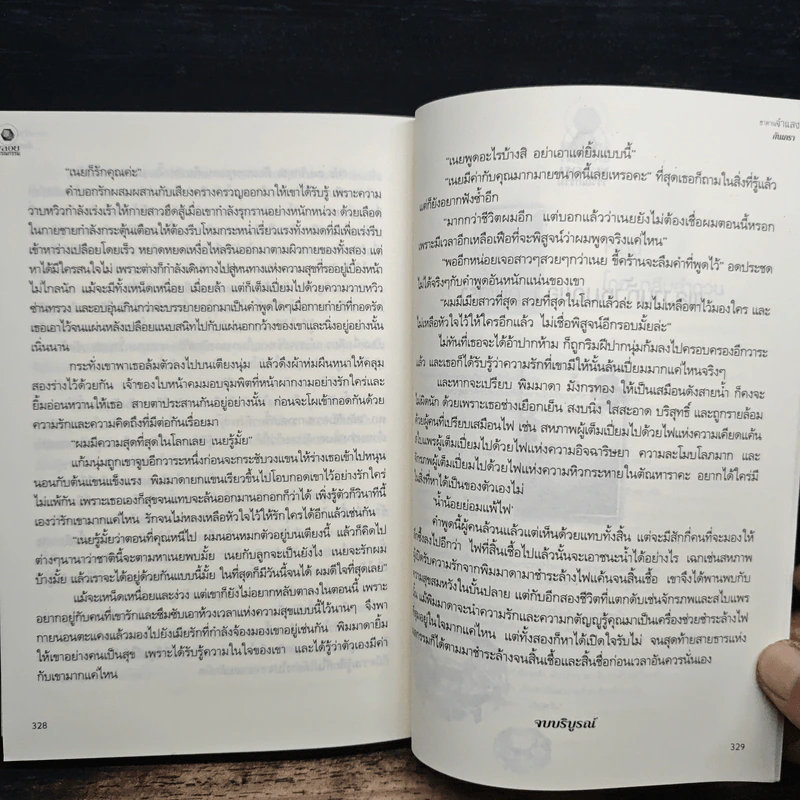 "เนยก็รักคุณค่ะ"
คำบอกรักผสมผสานกับเสียงครางครวญออกมาให้เขาได้รับรู้ เพราะความ
วาบหวิวกำลังเร่งเร้าให้กายสาวฮึดสู้เมื่อเขากำลังรุกรานอย่างหนักหน่วง ด้วยเลือด
ในกายชายกำลังกระตุ้นเตือนให้ต้องรีบโหมกระหน่ำเรี่ยวแรงทั้งหมดที่มีเพื่อเร่งรีบ
เข้าหาร่างเปลือยโดยเร็ว หยาดหยดเหงื่อไหลรินออกมาตามผิวกายของทั้งสอง แต่
หาได้มีใครสนใจไม่ เพราะต่างก็กำลังเดินทางไปสู่หนทางแห่งความสุขที่รออยู่เบื้องหน้า
ไม่ไกลนัก แม้จะมีทั้งเหน็ดเหนื่อย เมื่อยล้า แต่ก็เต็มเปี่ยมไปด้วยความวาบหวิว
ซ่านทรวง และอบอุ่นเกินกว่าจะบรรยายออกมาเป็นคำพูดใดๆเมื่อกายกำยำที่กอดรัด
เธอเอาไว้จนแผ่นหลังเปลือยแนบสนิทไปกับแผ่นอกกว้างของเขาและนิ่งอยู่อย่างนั้น
เนิ่นนาน
กระทั่งเขาพาเธอล้มตัวลงไปบนเตียงนุ่ม แล้วดึงผ้าห่มผืนหนาให้คลุม
สองร่างไว้ด้วยกัน เจ้าของใบหน้าคมมอบจุมพิตที่หน้าผากงามอย่างรักใคร่และ
ยิ้มอ่อนหวานให้เธอ สายตาประสานกันอยู่อย่างนั้น ก่อนจะโผเข้ากอดกันด้วย
ความรักและความคิดถึงที่มีต่อกันเรื่อยมา
"ผมมีความสุขที่สุดในโลกเลย เนยรู้มั้ย"
แก้มนุ่มถูกเขาจูบอีกวาระหนึ่งก่อนจะกระชับวงแขนให้ร่างเธอเข้าไปหนุน
นอนกับต้นแขนแข็งแรง พิมมาดายกแขนเรียวขึ้นไปโอบกอดเขาไว้อย่างรักใคร่
ไม่แพ้กัน เพราะเธอเองก็สุขจนแทบจะล้นออกมานอกอกก็ว่าได้ เพิ่งรู้ตัวก็วินาทีนี้
เองว่ารักเขามากแค่ไหน รักจนไม่หลงเหลือหัวใจไว้ให้รักใครได้อีกแล้วเช่นกัน
"เนยรู้มั้ยว่าตอนที่คุณหนีไป ผมนอนหมกตัวอยู่บนเตียงนี้ แล้วก็คิดไป
ต่างๆนานาว่าชาตินี้จะตามหาเนยพบมั้ย เนยกับลูกจะเป็นยังไง เนยจะรักผม
บ้างมั้ย แล้วเราจะได้อยู่ด้วยกันแบบนี้มั้ย ในที่สุดก็มีวันนี้จนได้ ผมดีใจที่สุดเลย"
แม้จะเหน็ดเหนื่อยและง่วง แต่เขาก็ยังไม่อยากหลับตาลงในตอนนี้ เพราะ
อยากอยู่กับคนที่เขารักและซึมซับเอาห้วงเวลาแห่งความสุขแบบนี้ไว้นานๆ จึงพา
กายนอนตะแคงแล้วมองไปยังเมียรักที่กำลังจ้องมองเขาอยู่เช่นกัน พิมมาดายิ้ม
ให้เขาอย่างคนเป็นสุข เพราะได้รับรู้ความในใจของเขา และได้รู้ว่าตัวเองมีค่า
กับเขามากแค่ไหน
328
กันยตรา
"เนยพูดอะไรบ้างสิ อย่าเอาแต่ยิ้มแบบนี้"
"เนยมีค่ากับคุณมากมายขนาดนี้เลยเหรอคะ" ที่สุดเธอก็ถามในสิ่งที่รู้แล้ว
แต่ก็ยังอยากฟังซ้ำอีก
"มากกว่าชีวิตผมอีก แต่บอกแล้วว่าเนยยังไม่ต้องเชื่อผมตอนนี้หรอก
เพราะมีเวลาอีกเหลือเฟือที่จะพิสูจน์ว่าผมพูดจริงแค่ไหน"
"พออีกหน่อยเจอสาวๆสวยๆกว่าเนย ขี้คร้านจะลืมคำที่พูดไว้" อดประชด
ไม่ได้จริงๆกับคำพูดอันหนักแน่นของเขา
"ผมมีเมียสาวที่สุด สวยที่สุดในโลกแล้วล่ะ ผมไม่เหลือตาไว้มองใคร และ
ไม่เหลือหัวใจไว้ให้ใครอีกแล้ว ไม่เชื่อพิสูจน์อีกรอบมั้ยล่ะ"
ไม่ทันที่เธอจะได้อ้าปากห้าม ก็ถูกริมฝีปากนุ่มก้มลงไปครอบครองอีกวาระ
แล้ว และเธอก็ได้รับรู้ว่าความรักที่เขามีให้นั้นล้นเปี่ยมมากแค่ไหนจริงๆ
และหากจะเปรียบ พิมมาดา มังกรทอง ให้เป็นเสมือนดังสายน้ำ ก็คงจะ
ไม่ผิดนัก ด้วยเพราะเธอช่างเยือกเย็น สงบนิ่ง ใสสะอาด บริสุทธิ์ และถูกรายล้อม
ด้วยผู้คนที่เปรียบเสมือนไฟ เช่น สหภาพผู้เต็มเปี่ยมไปด้วยไฟแห่งความเคียดแค้น
ผู้เต็มเปี่ยมไปด้วยไฟแห่งความอิจฉาริษยา ความละโมบโลภมาก และ
จักรภพผู้เต็มเปี่ยมไปด้วยไฟแห่งความหิวกระหายในตัณหาราคะ อยากได้ใคร่มี
ในสิ่งที่หาได้เป็นของตัวเองไม่
'น้ำน้อยย่อมแพ้ไฟ'
คำพูดนี้ผู้คนล้วนแล้วแต่เห็นด้วยแทบทั้งสิ้น แต่จะมีสักกี่คนที่จะมองให้
ลึกซึ้งลงไปอีกว่า ไฟที่สิ้นเชื้อไปแล้วนั้นจะเอาชนะน้ำได้อย่างไร เฉกเช่นสหภาพ
ผู้เปิดรับความรักจากพิมมาดามาชำระล้างไฟแค้นจนสิ้นเชื้อ เขาจึงได้พานพบกับ
ความสุขสมหวังในบั้นปลาย แต่กับอีกสองชีวิตที่แตกดับเช่นจักรภพและสไบแพร
แม้พิมมาดาจะนำความรักและความกตัญญูรู้คุณมาเป็นเครื่องช่วยชำระล้างไฟ
ที่สุมอยู่ในใจมากแค่ไหน แต่ทั้งสองก็หาได้เปิดใจรับไม่ จนสุดท้ายสายธารแห่ง
กรรมก็ได้ตามมาชำระล้างจนสิ้นเชื้อและสิ้นชื่อก่อนเวลาอันควรนั่นเอง
จบบริบูรณ์
329